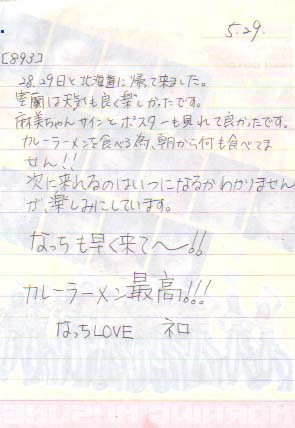 5.29.
[893]
28.29日と北海道に帰って来ました。
室蘭は天気も良く楽しかったです。
麻美ちゃんサインとポスターも見れて良かったです。
カレーラーメンを食べる為、朝から何も食べてま
せん!!
次に来れるのはいつになるかわかりません
が、楽しみにしています。
なっちも早く来て〜!!
カレーラーメン最高!!!
なっちLOVE 和